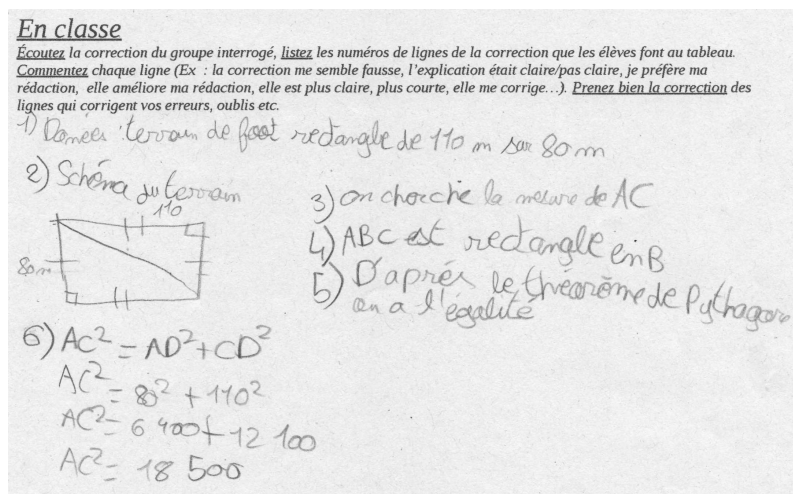 En classe
Écoutez la correction du groupe interrogé, listez les numéros de lignes de la correction que les élèves font au tableau.
Commentez chaque ligne (Ex : la correction me semble fausse, l'explication était claire/pas claire, je préfère ma
rédaction, elle améliore ma rédaction, elle est plus claire, plus courte, elle me corrige…). Prenez bien la correction des
lignes qui corrigent vos erreurs, oublis etc.
1) Données : terrain de foot rectangle de 110 m sur 80 m
2) Schéma du terrain
110
80m
3) on cherche la mesure de AC
4) ABC est rectangle en B
5) D'après le théorème de Pythagore
on a l'égalité
6) AC² = AD² + CD²
AC² = 80² + 110²
AC² = 6 400 + 12 100
AC² = 18 500